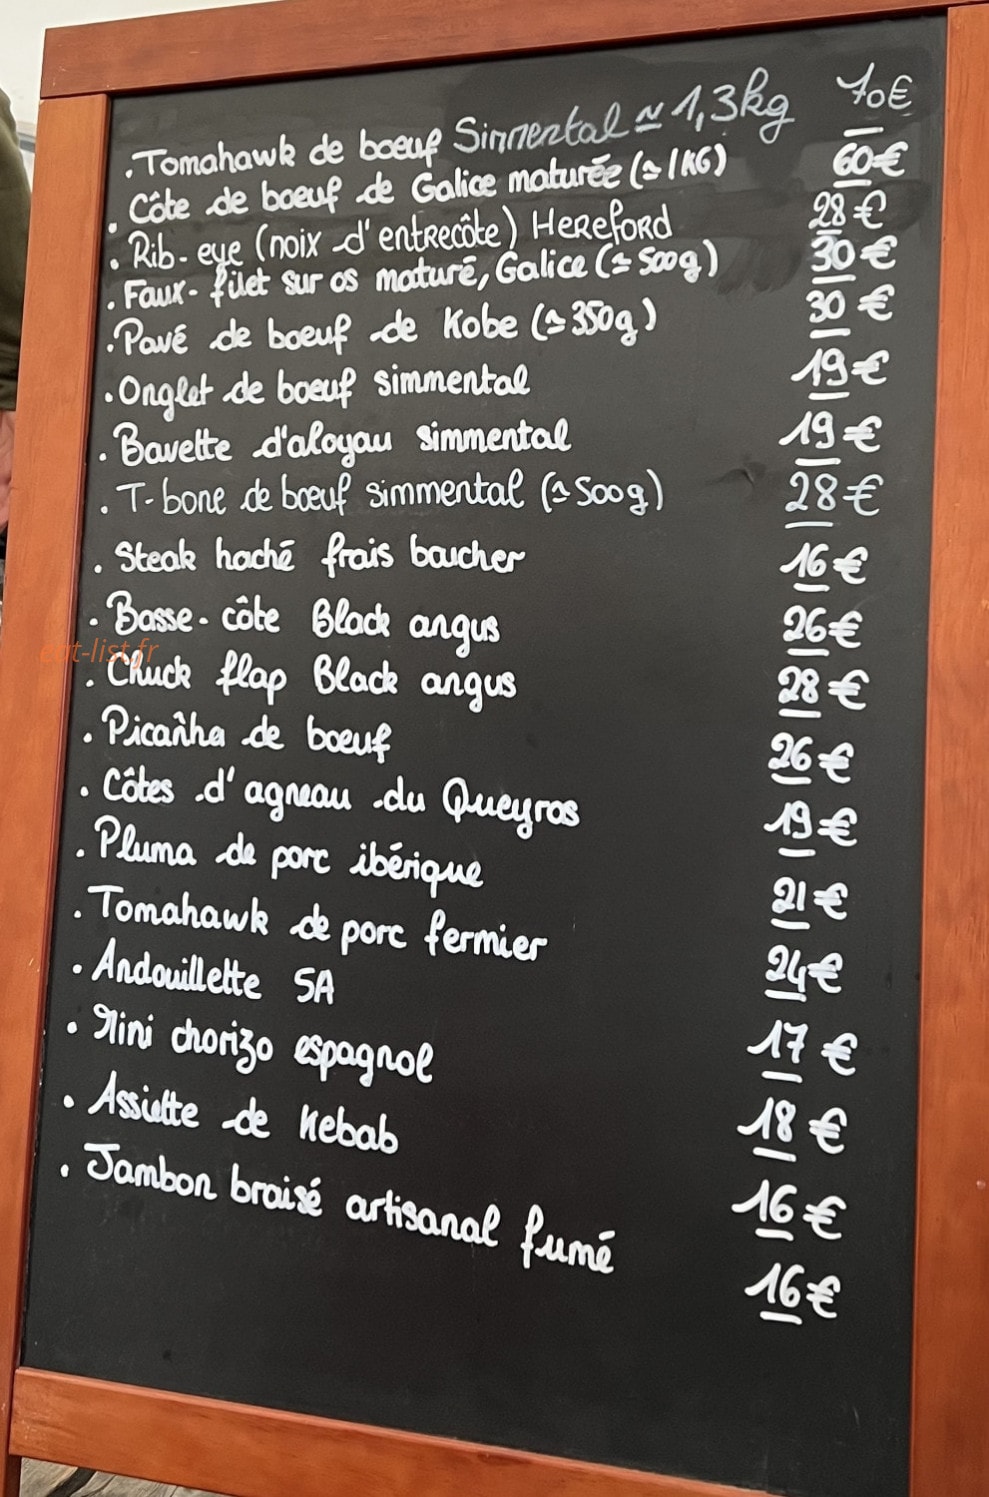 . Tomahawk de boeuf Simmental ≃ 1,3kg 70€
. Côte de boeuf de Galice maturée (≃ 1KG) 60€
. Rib-eye (noix d'entrecôte) Hereford 28€
. Faux-filet sur os maturé, Galice (≃ 500g) 30€
. Pavé de boeuf de Kobe (≃ 350g) 30 €
. Onglet de boeuf simmental 19€
. Bavette d'aloyau simmental 19€
. T-bone de boeuf simmental (≃ 500g) 28€
. Steak haché frais boucher 16€
. Basse-côte Black angus 26€
eat-list.fr
. Chuck flap Black angus 28€
. Picanha de boeuf 26€
. Côtes d'agneau du Queyras 19€
. Pluma de porc ibérique 21€
. Tomahawk de porc fermier 24€
. Andouillette 5A 17 €
. Mini chorizo espagnol 18 €
. Assiette de Kebab 16€
. Jambon braisé artisanal fumé 16€